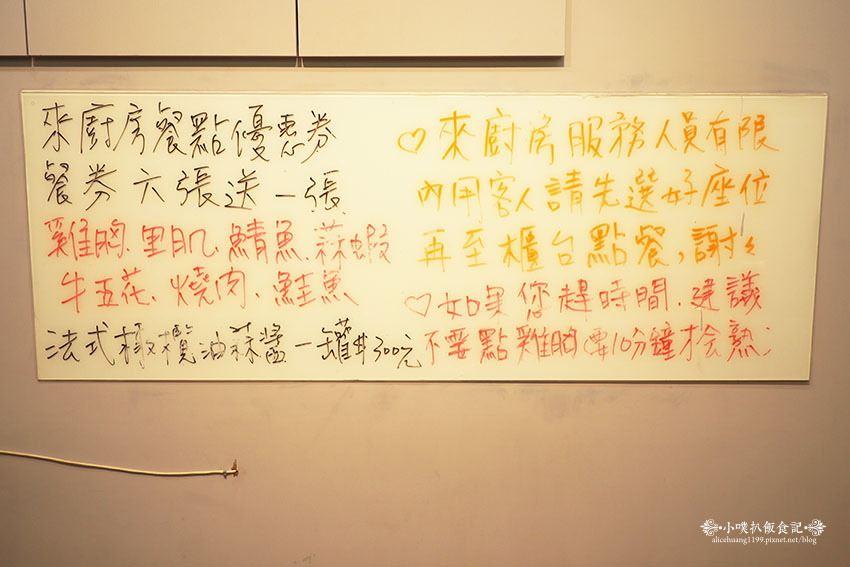 來廚房餐點優惠券
餐券六張送一張
雞胸、里肌、鯖魚、蒜蝦
牛五花、燒肉、鮭魚
法式橄欖油蒜醬一罐#300元
♡來廚房服務人員有限
內用客人請先選好座位
再至櫃台點餐,謝々
♡如果您趕時間、建議
不要點雞胸(要10分鐘才会熟)
小噗扒飯食記
alicehuang1199.pixnet.net/blog